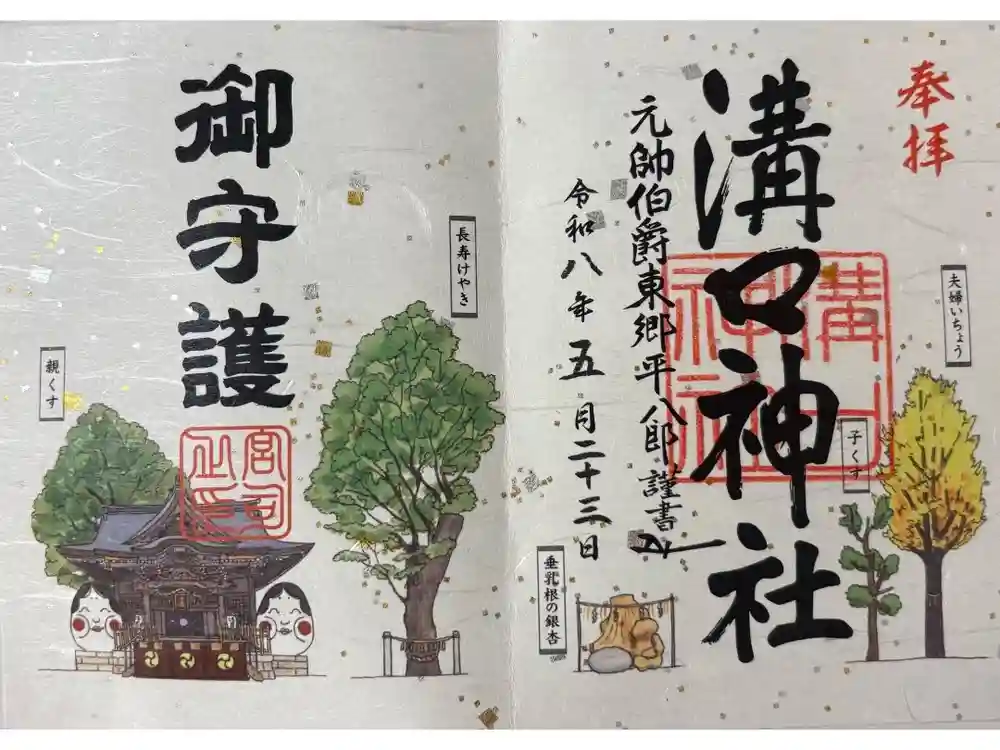 奉拝
溝口神社
元帥伯爵東郷平八郎謹書
令和八年五月二十三日
溝口神社
夫婦いちょう
子くす
垂乳根の銀杏
長寿けやき
御守護
親くす
宮司之印